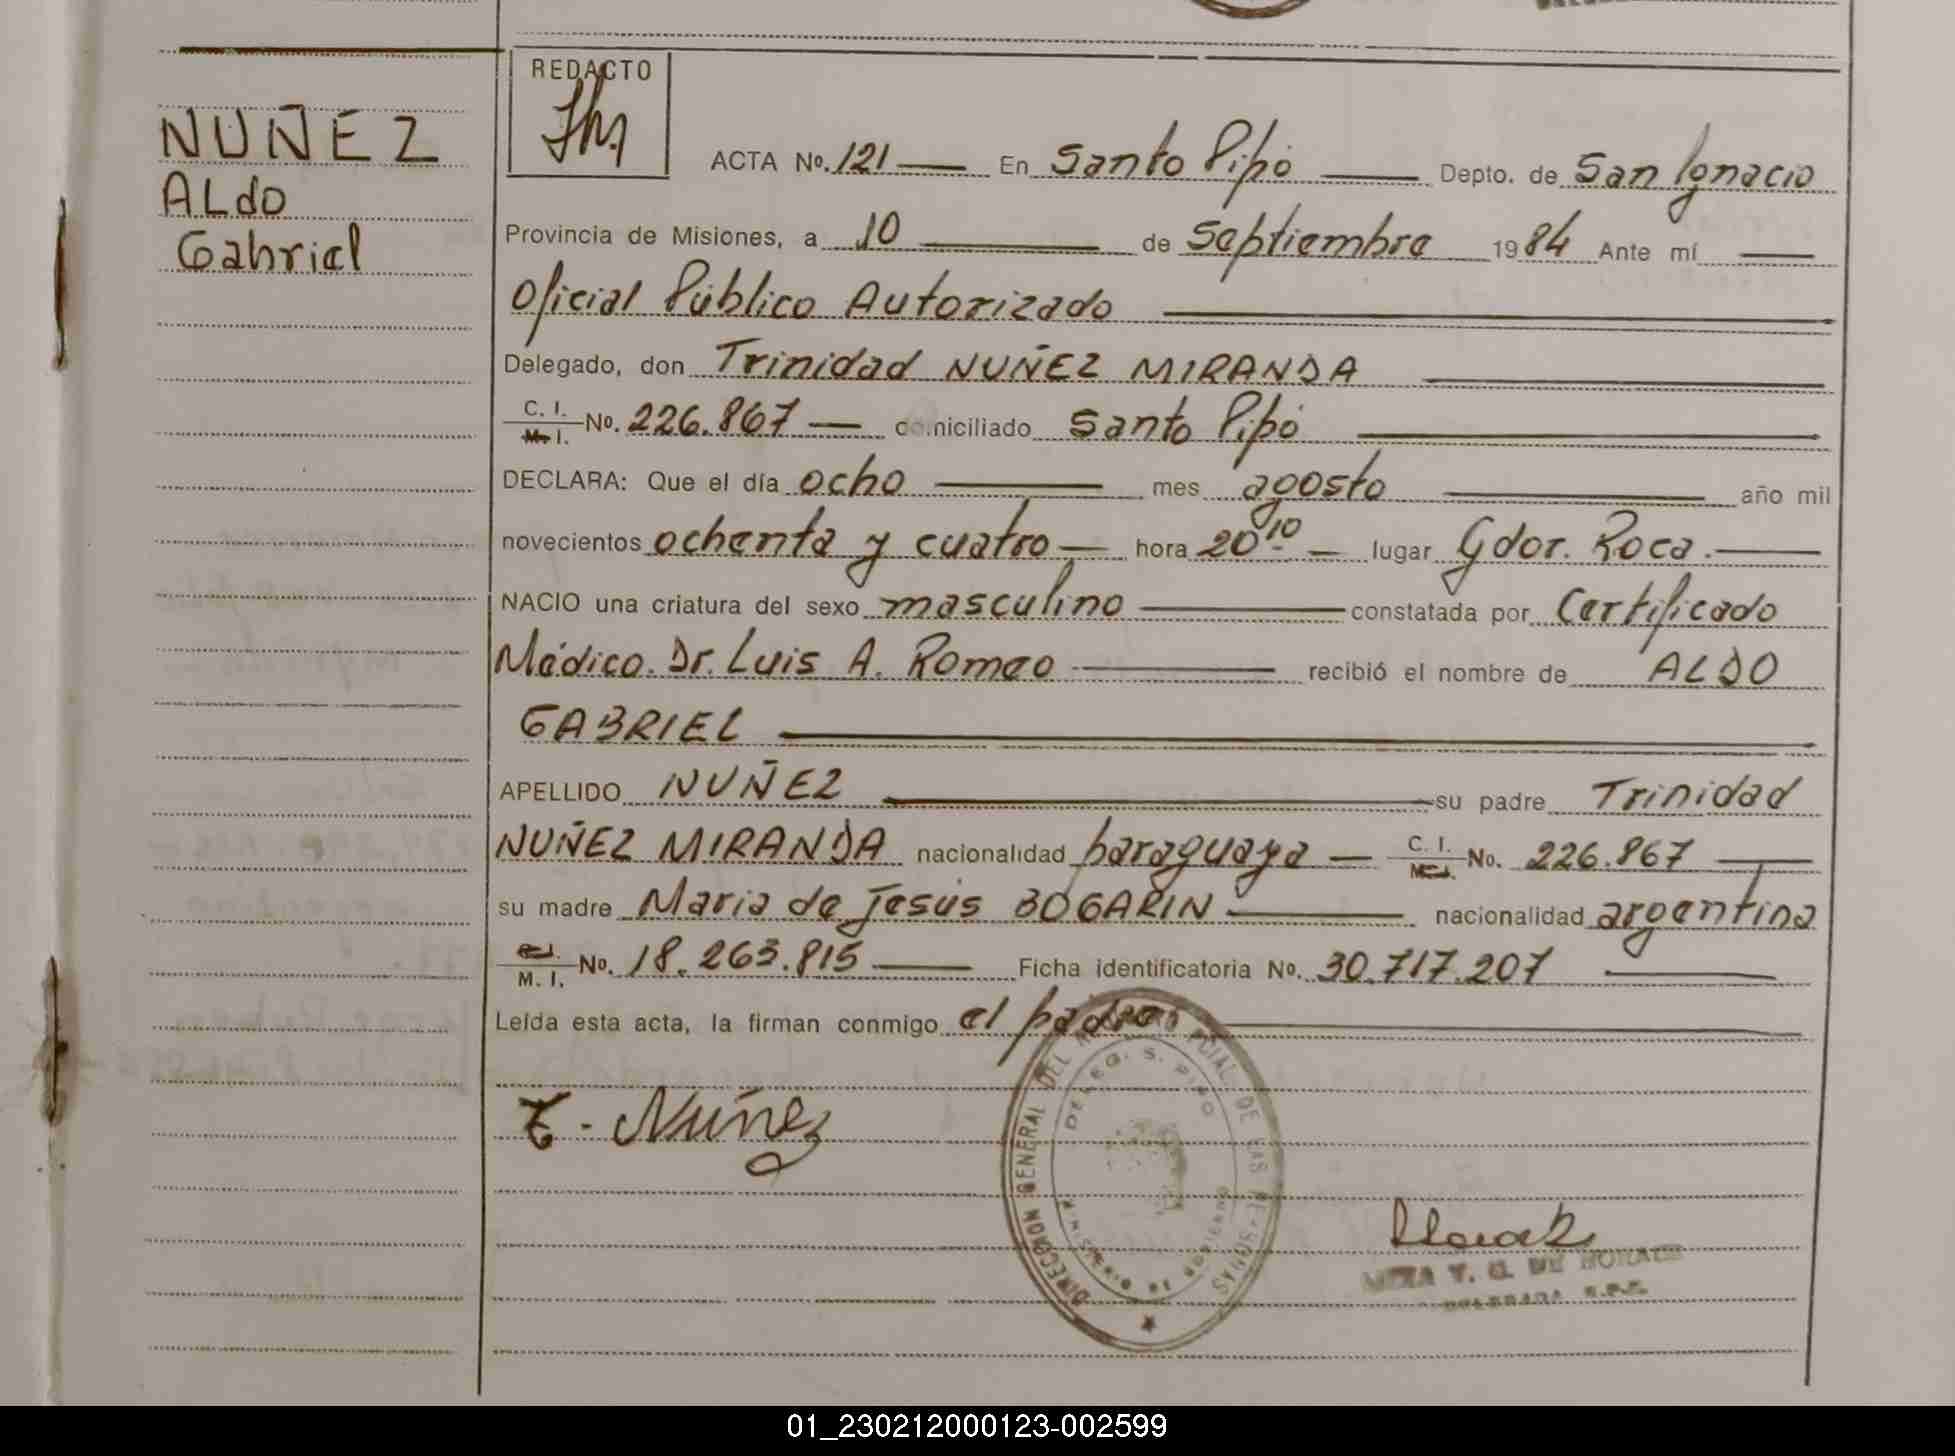 NUÑEZ
ALdo
Gabriel
REDACTO
ACTA No. 121 En Santo Pipó Depto. de San Ignacio
Provincia de Misiones, a 10 de Septiembre 1984 Ante mí
Oficial Público Autorizado
Delegado, don Trinidad NUÑEZ MIRANDA
C. I.
M. I. No. 226.867 domiciliado Santo Pipó
DECLARA: Que el día ocho mes agosto año mil
novecientos ochenta y cuatro hora 20 10 lugar Gdor. Roca.
NACIO una criatura del sexo masculino constatada por Certificado
Médico. Dr. Luis A. Romeo recibió el nombre de ALDO
GABRIEL
APELLIDO NUÑEZ su padre Trinidad
NUÑEZ MIRANDA nacionalidad paraguaya C. I. M. I. No. 226.867
su madre Maria de Jesús BOGARIN nacionalidad argentina
C. I. M. I. No. 18.263.815 Ficha identificatoria No. 30.717.207
Leída esta acta, la firman conmigo el padre
T. Nuñez
DIRECCION GENERAL DEL REGISTRO PROVINCIAL DE LAS PERSONAS
DELEG. S. PIPO
MINISTERIO DE GOBIERNO
DELEGADA R.P.P.
01_230212000123-002599